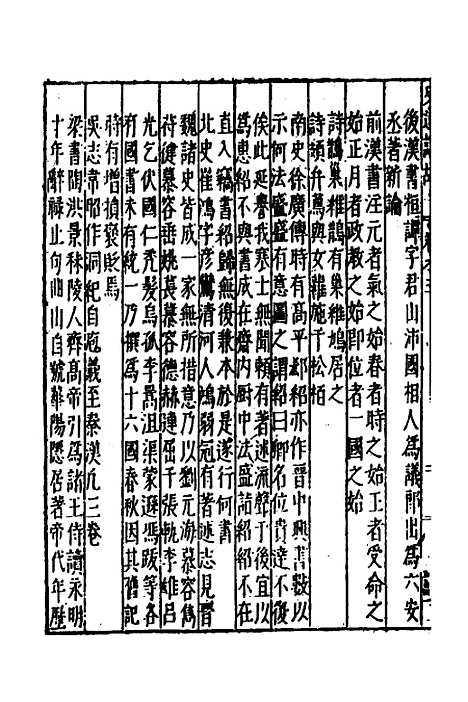 後漢書桓譚字君山沛國相人為議郎出為六安
丞著新論
前漢書注元者氣之始春者時之始王者受命之
始正月者政教之始即位者一國之始
詩鵲巢維鵲有巢維鳩居之
詩頍弁蔦與女蘿施于松栢
南史徐廣傳時有高平郄紹亦作晉中興書數以
示何法盛盛有意圖之謂紹曰卿名位貴達不復
俟此延譽我寒士無聞頼有著述流聲于後宜以
為惠紹不與書成在齋内厨中法盛詣紹紹不在
直入竊書紹歸無復兼本於是遂行何書
北史崔鴻字彦鸞清河人鴻弱冠有著述志見晉
魏諸史皆成一家無所措意以劉元海慕容雋
苻健慕容垂姚萇慕容德赫連屈千張軌李雄吕
光乞伏國仁秃髮烏孤李暠沮渠蒙遜馮跋等各
有國書未有統一乃撰為十六國春秋因其舊記
時有增損褒貶焉
吳志韋昭作洞紀自庖羲至秦漢凡三卷
梁書陶洪景秣陵人齊髙帝引為諸王侍讀永明
十年辭禄止向曲山自號華陽隱居著帝代年歷